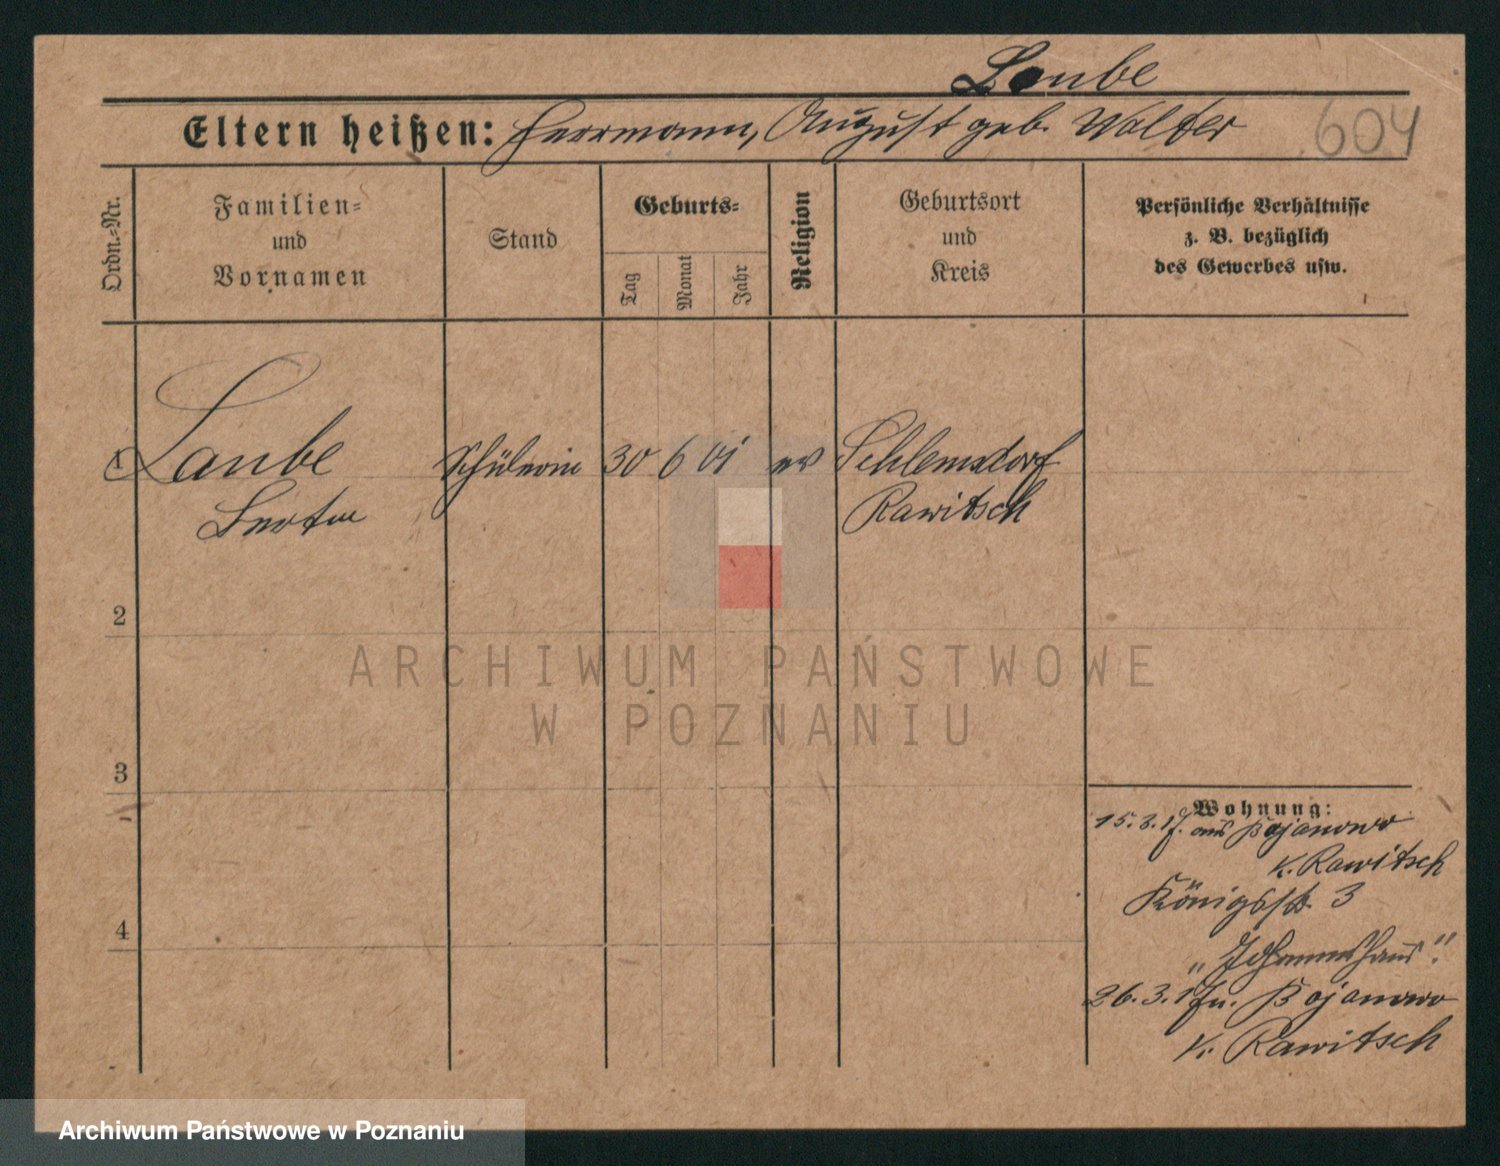 Laube
Eltern heißen: Herrmann, August geb. Walter
604
Ordn.=Nr.
Familien=
und
Vornamen
Stand
Geburts=
Tag
Monat
Jahr
Religion
Geburtsort
und
Kreis
Persönliche Verhältnisse
z. B. bezüglich
des Gewerbes usw.
1 Laube Schülerin 30 6 01 ev Schlemsdorf
Rawitsch
2
3
4
ARCHIWUM PAŃSTWOWE
W POZNANIU
Wohnung:
15.3.17. aus Bojanowo
K. Rawitsch
Königsstr. 3
„Johannshaus".
26.3.17 n. Bojanowo
K. Rawitsch
Archiwum Państwowe w Poznaniu